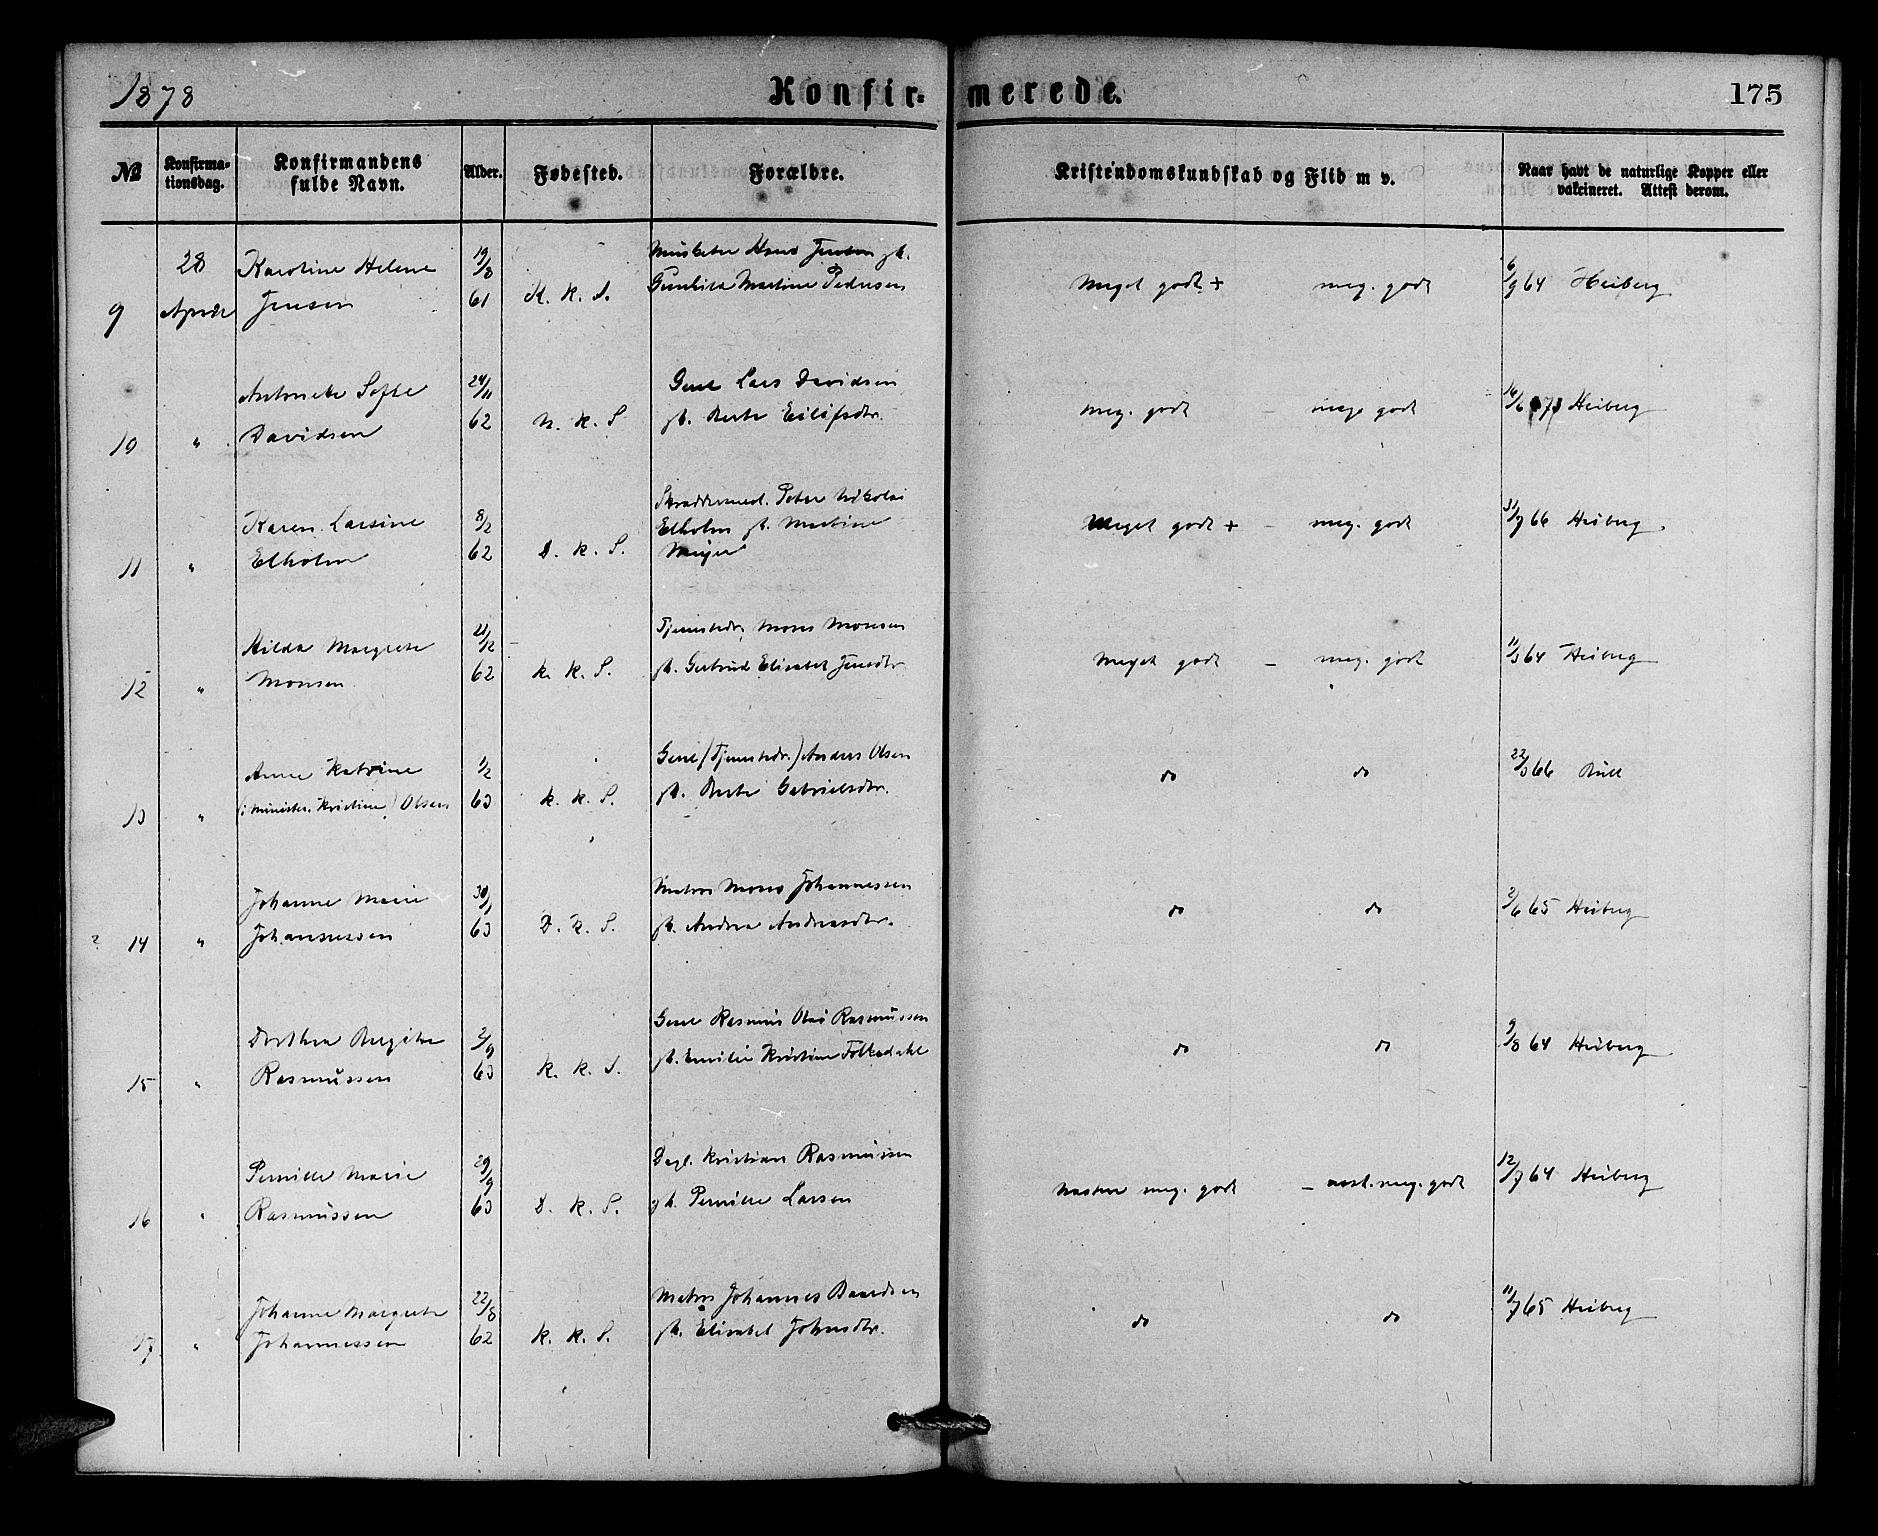 1878 Konfir- merede. 175
№ Konfirma- Konfirmandens Alder. Fødested. Forældre. Kristendomskundskab og Flid m v. Naar havt de naturlige Kopper eller
tionsdag. fulde Navn. vakcineret. Attest derom.
28 Karoline Helene 19/8 Hans Jensen
9 April Jensen 61 K. K. S. Martine Pedersen Meget godt + meg. godt 6/9 64 Heiberg
Antonete Sofie 24/11 Gene Lars Davidsen
10 " Davidsen 62 N. K. S Berte Eilifsdtr. meg. godt – meg. godt Heiberg
Karen Larsine 8/2 Skræddermest. Peter Nikolai
Elholm Martine
11 " Elholm 62 D. K. S. Meyer Meget godt + – meg. godt 31/7 66 Heiberg
Hilda Margrete 21/12 Tjenestedr. Mons Monsen
12 " Monsen 62 K. K. S. Gertrud Elisabet Jensdtr Meget godt – meg. godt 11/3 64 Heiberg
Anne Katrine 1/2 Gene (Tjenestedr.) Anders Olsen
13 " (i Minister. Kristine) Olsen 63 K. K. S. Berte Gabrielsdtr. do do 22/3 66
Johanne Marie 30/1 Matros Mons Johannessen
14 " Johannessen 63 D. K. S. Andrea Andreasdtr. do do 2/6 65 Heiberg
Dorthea Birgitte 2/9 Gene Rasmus Olai Rasmussen
15 " Rasmussen 63 K. K. S. Emilie Kristine Folkedahl do do 9/8 64 Heiberg
Pernille Marie 29/9 Dagl. Kristian Rasmussen
16 " Rasmussen 63 D. K. S. Pernille Larsen Næsten meg. godt – næst. meg. godt 12/7 64 Heiberg
Johanne Margrete 22/8 Matros Johannes
17 " Johannessen 62 K. K. S. Elisabet Johnsdtr. do do 11/7 65 Heiberg